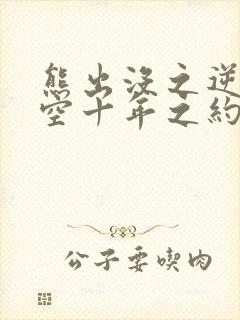 熊出没之逆
空十年之約
公子要喫肉